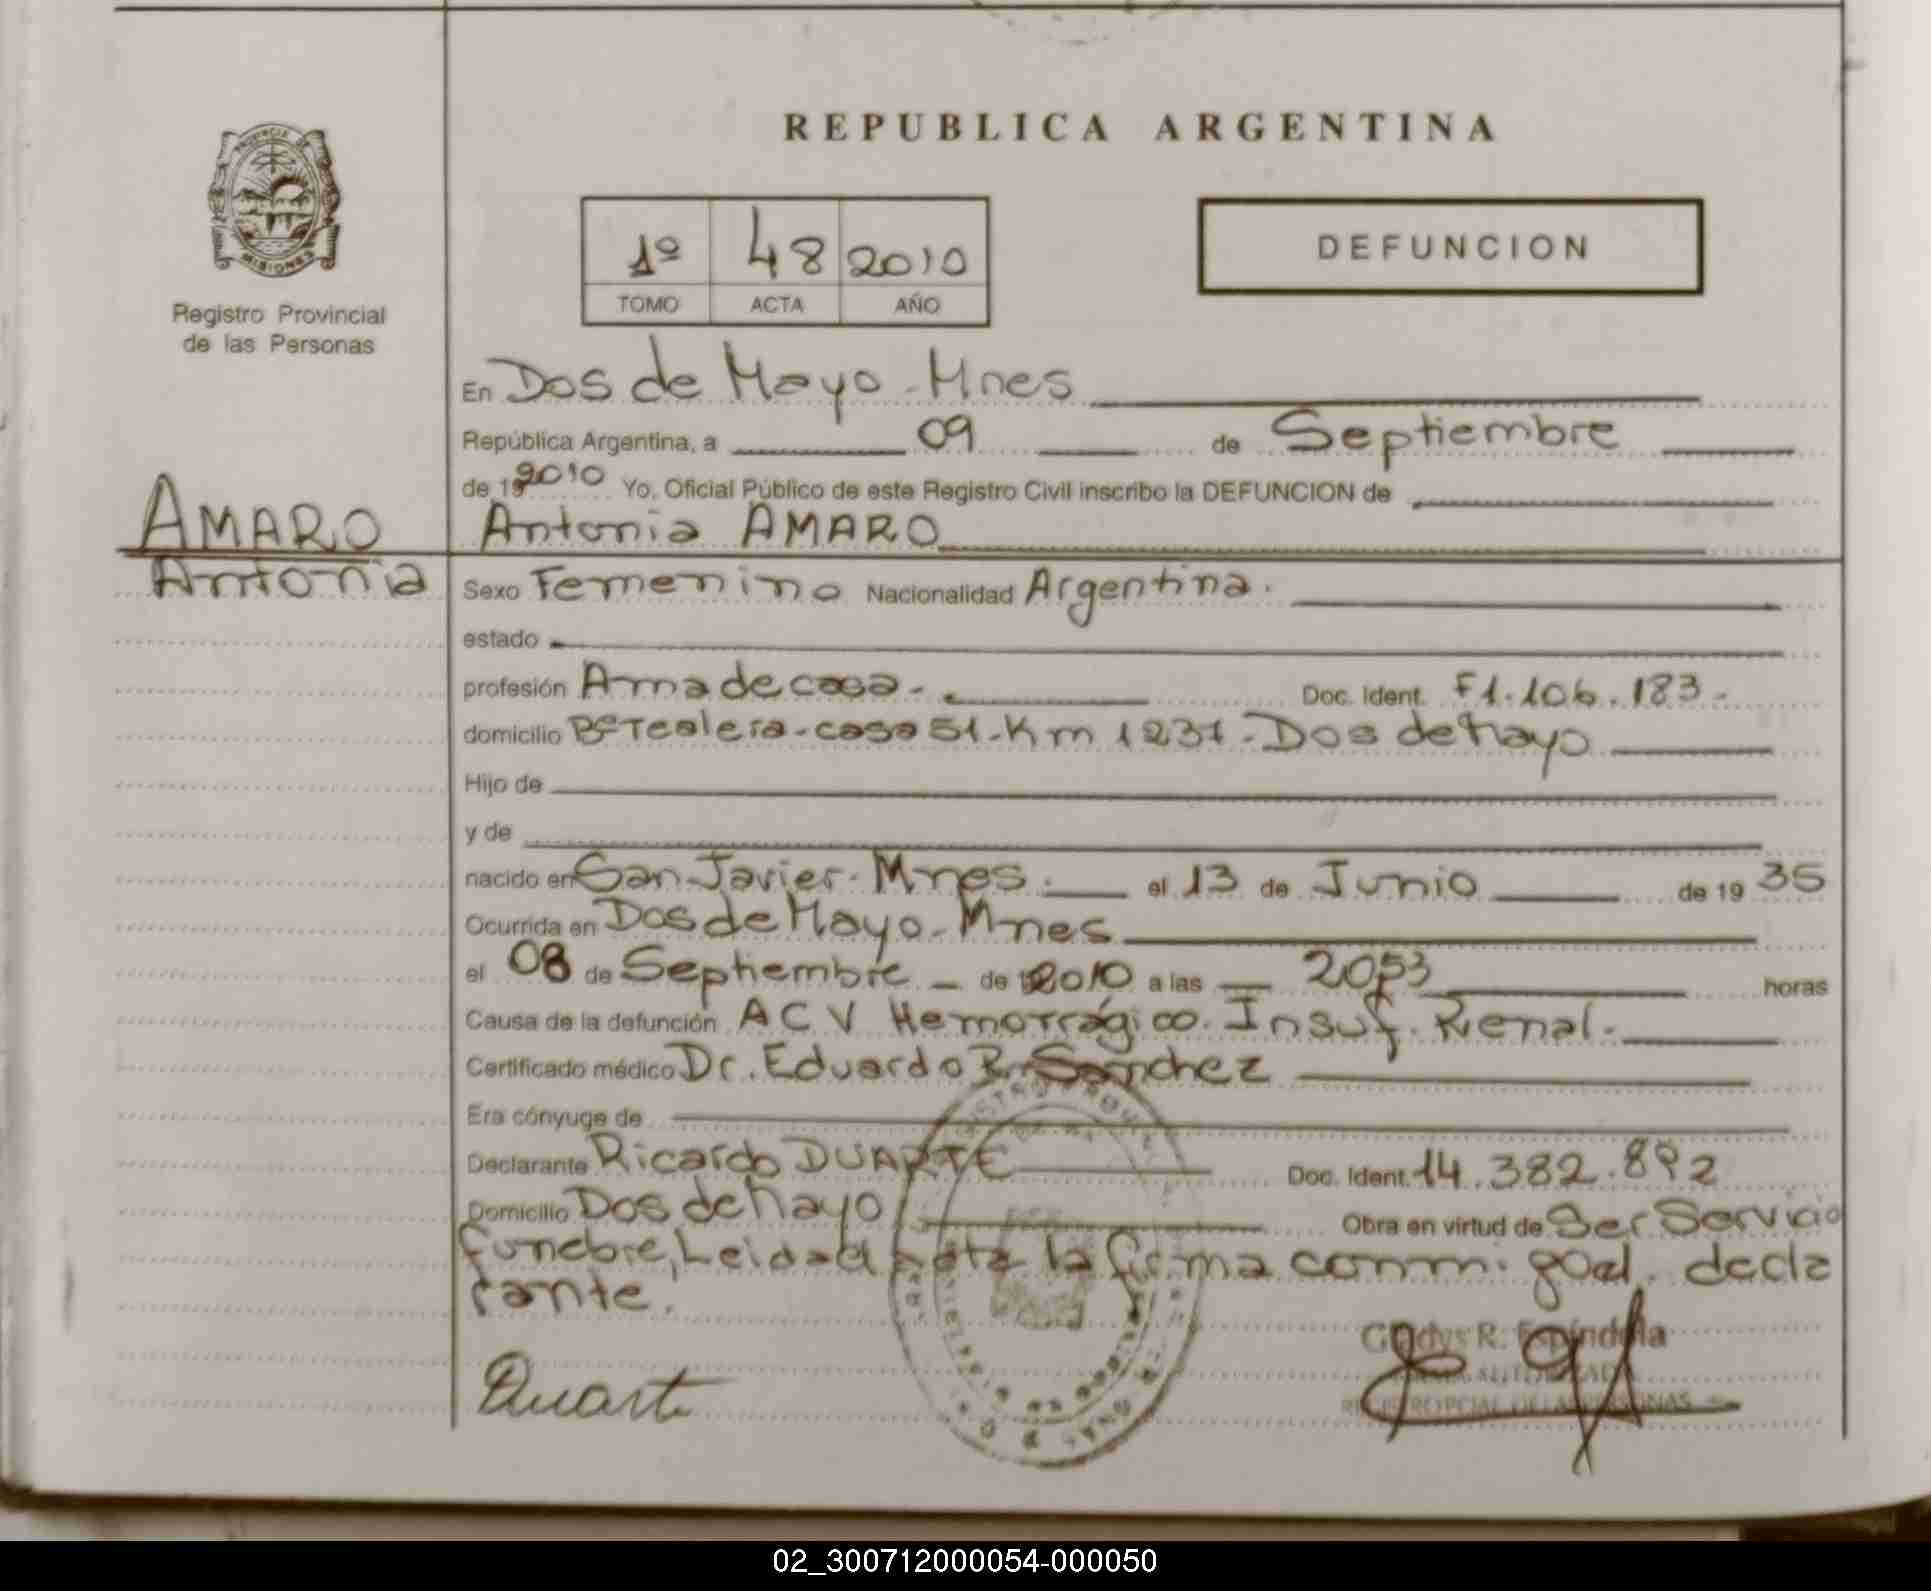 REPUBLICA ARGENTINA
PROVINCIA DE
MISIONES
Registro Provincial
de las Personas
1º 48 2010
TOMO ACTA AÑO
DEFUNCION
En Dos de Mayo - Mnes
República Argentina, a 09 de Septiembre
de 19 2010 Yo, Oficial Público de este Registro Civil inscribo la DEFUNCION de
AMARO
Antonia
Antonia AMARO
Sexo Femenino Nacionalidad Argentina.
estado
profesión Ama de casa - Doc. Ident. F1.106.183-
domicilio Bº Tealera - casa 51 - Km 1231 - Dos de Mayo
Hijo de
y de
nacido en San Javier - Mnes. el 13 de Junio de 19 35
Ocurrida en Dos de Mayo - Mnes
el 08 de Septiembre - de 2010 a las 2053 horas
Causa de la defunción ACV Hemorrágico. Insuf. Renal.
Certificado médico Dr. Eduardo R. Sanchez
Era cónyuge de
Declarante Ricardo DUARTE Doc. Ident. 14.382.892
Domicilio Dos de Mayo Obra en virtud de Ser Servicio
funebre, Leida el acta la firma conmigo el decla
rante.
Duarte
Gladys R. Espíndola
FIRMA AUTORIZADA
REGISTRO PCIAL. DE LAS PERSONAS
02_300712000054-000050